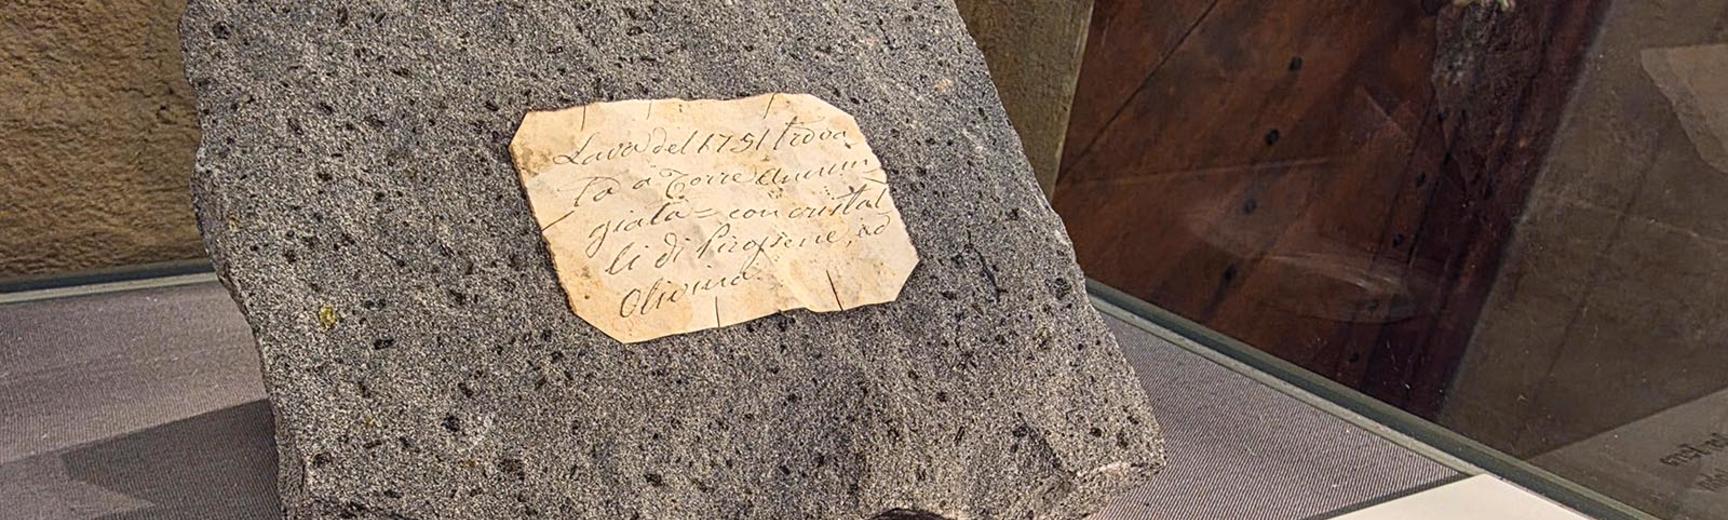 Lava del 1751 trova
ta a Torre Annun
giata = con cristal
li di Pirossene, ed
Olivina